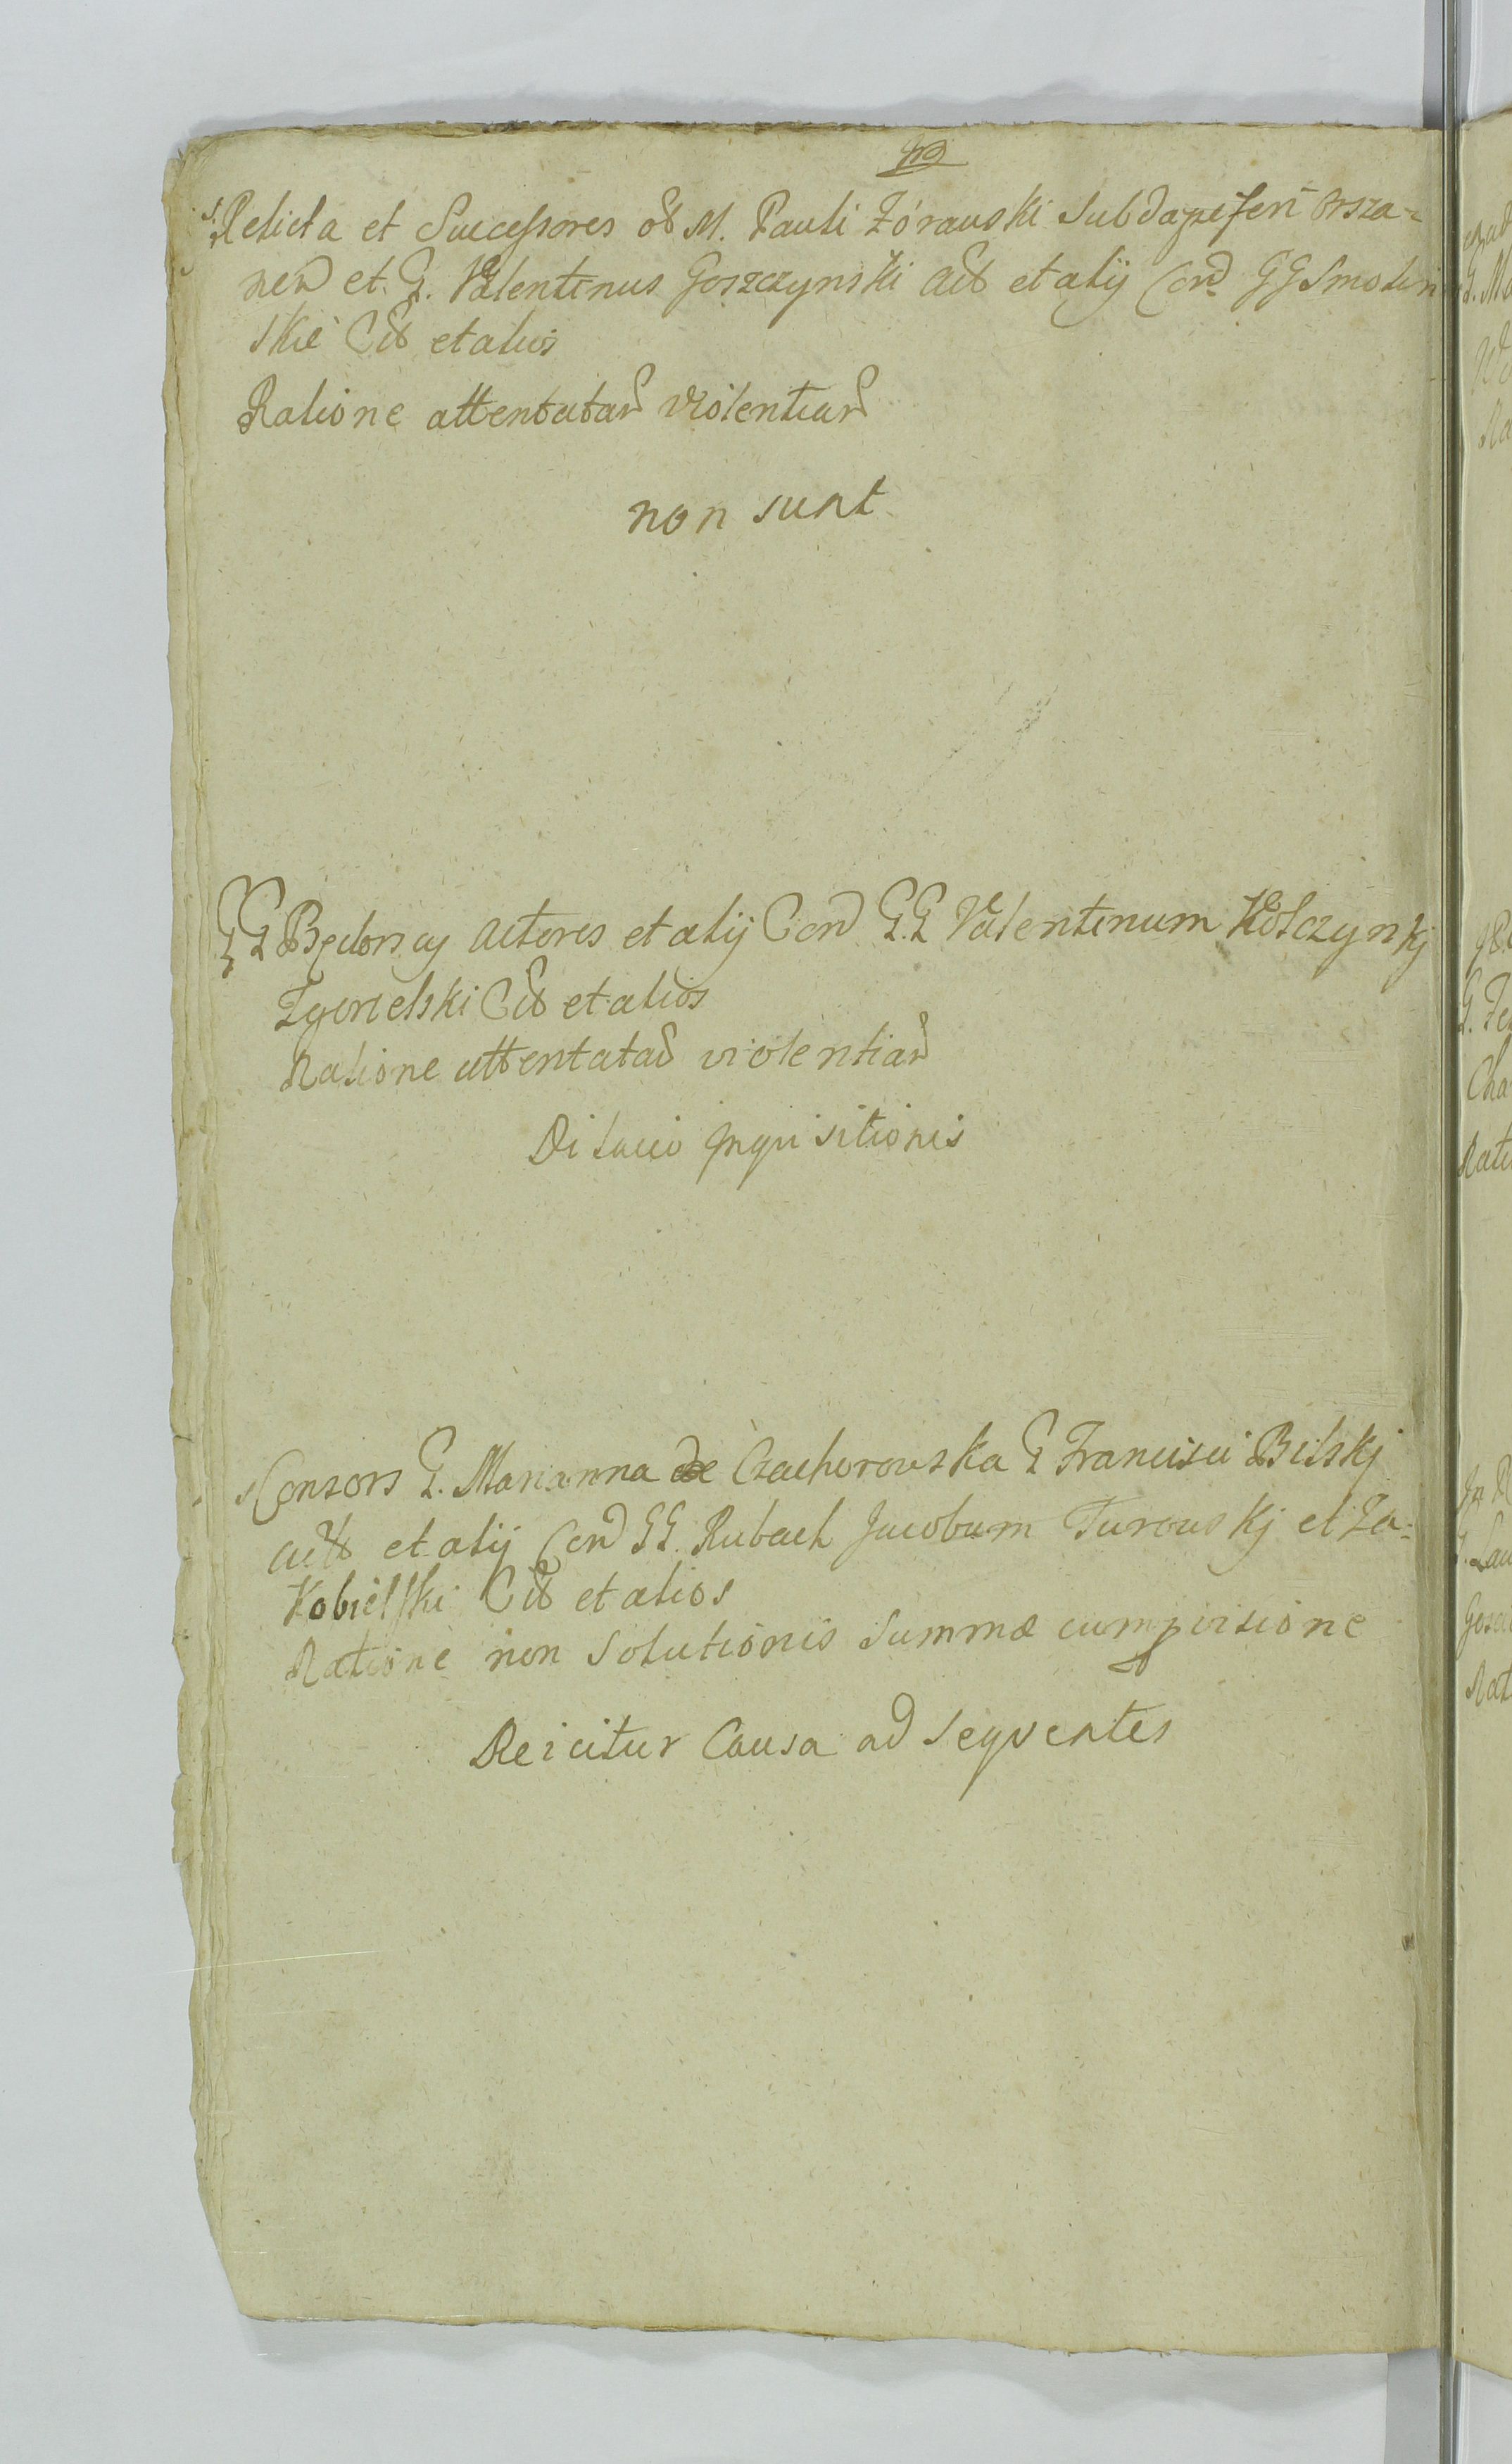 Relicta et Successores ol M. Pauli Zórawski Subdapiferi Orsza-
nen et G. Valentinus Goszczynski act et alij Con GG Smolin
skie Cit et alios
Ratione attentatar violentiar
non sunt
GG Będonscy actores et alij Con G.G Valentinum Kolczynskj
Zgorzelski Cit et alios
Ratione attentatar violentiar
Dilacio Inquisitionis
Consors G. Marianna de Czachorowska G Francisci Bilskj
act et alij Con GG. Rubach Jacobum Turowskj et Za-
Kobielski Cit et alios
Ratione non Solutionis Summæ cum provisione
Reicitur Causa ad Seqventes